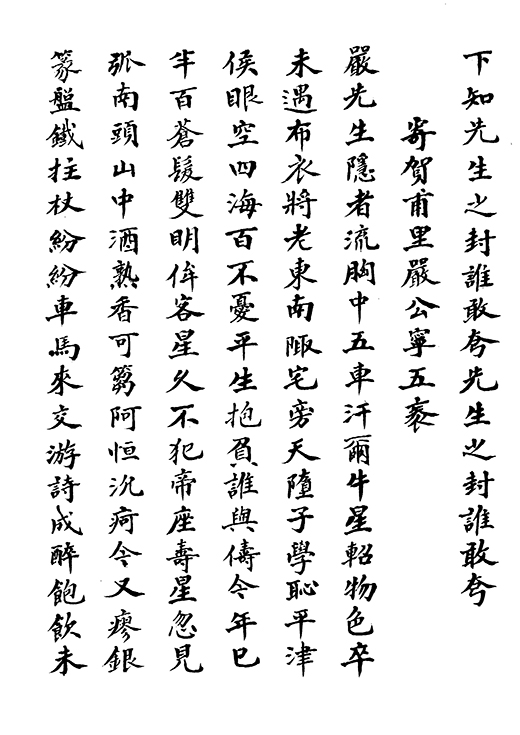 下知先生之封誰敢夸先生之封誰敢夸
寄賀甫里嚴公寧五袠
嚴先生隱者流胸中五車汗爾牛星軺物色卒
未遇布衣將老東南陬宅旁天墮子學恥平津
侯眼空四海百不憂平生抱負誰與儔今年巳
半百蒼髮雙明侔客星久不犯帝座壽星忽見
弧南頭山中酒熟香可篘阿恒沉疴今又瘳銀
篆盤鐵拄杖紛紛車馬來交游詩成醉飽飲未